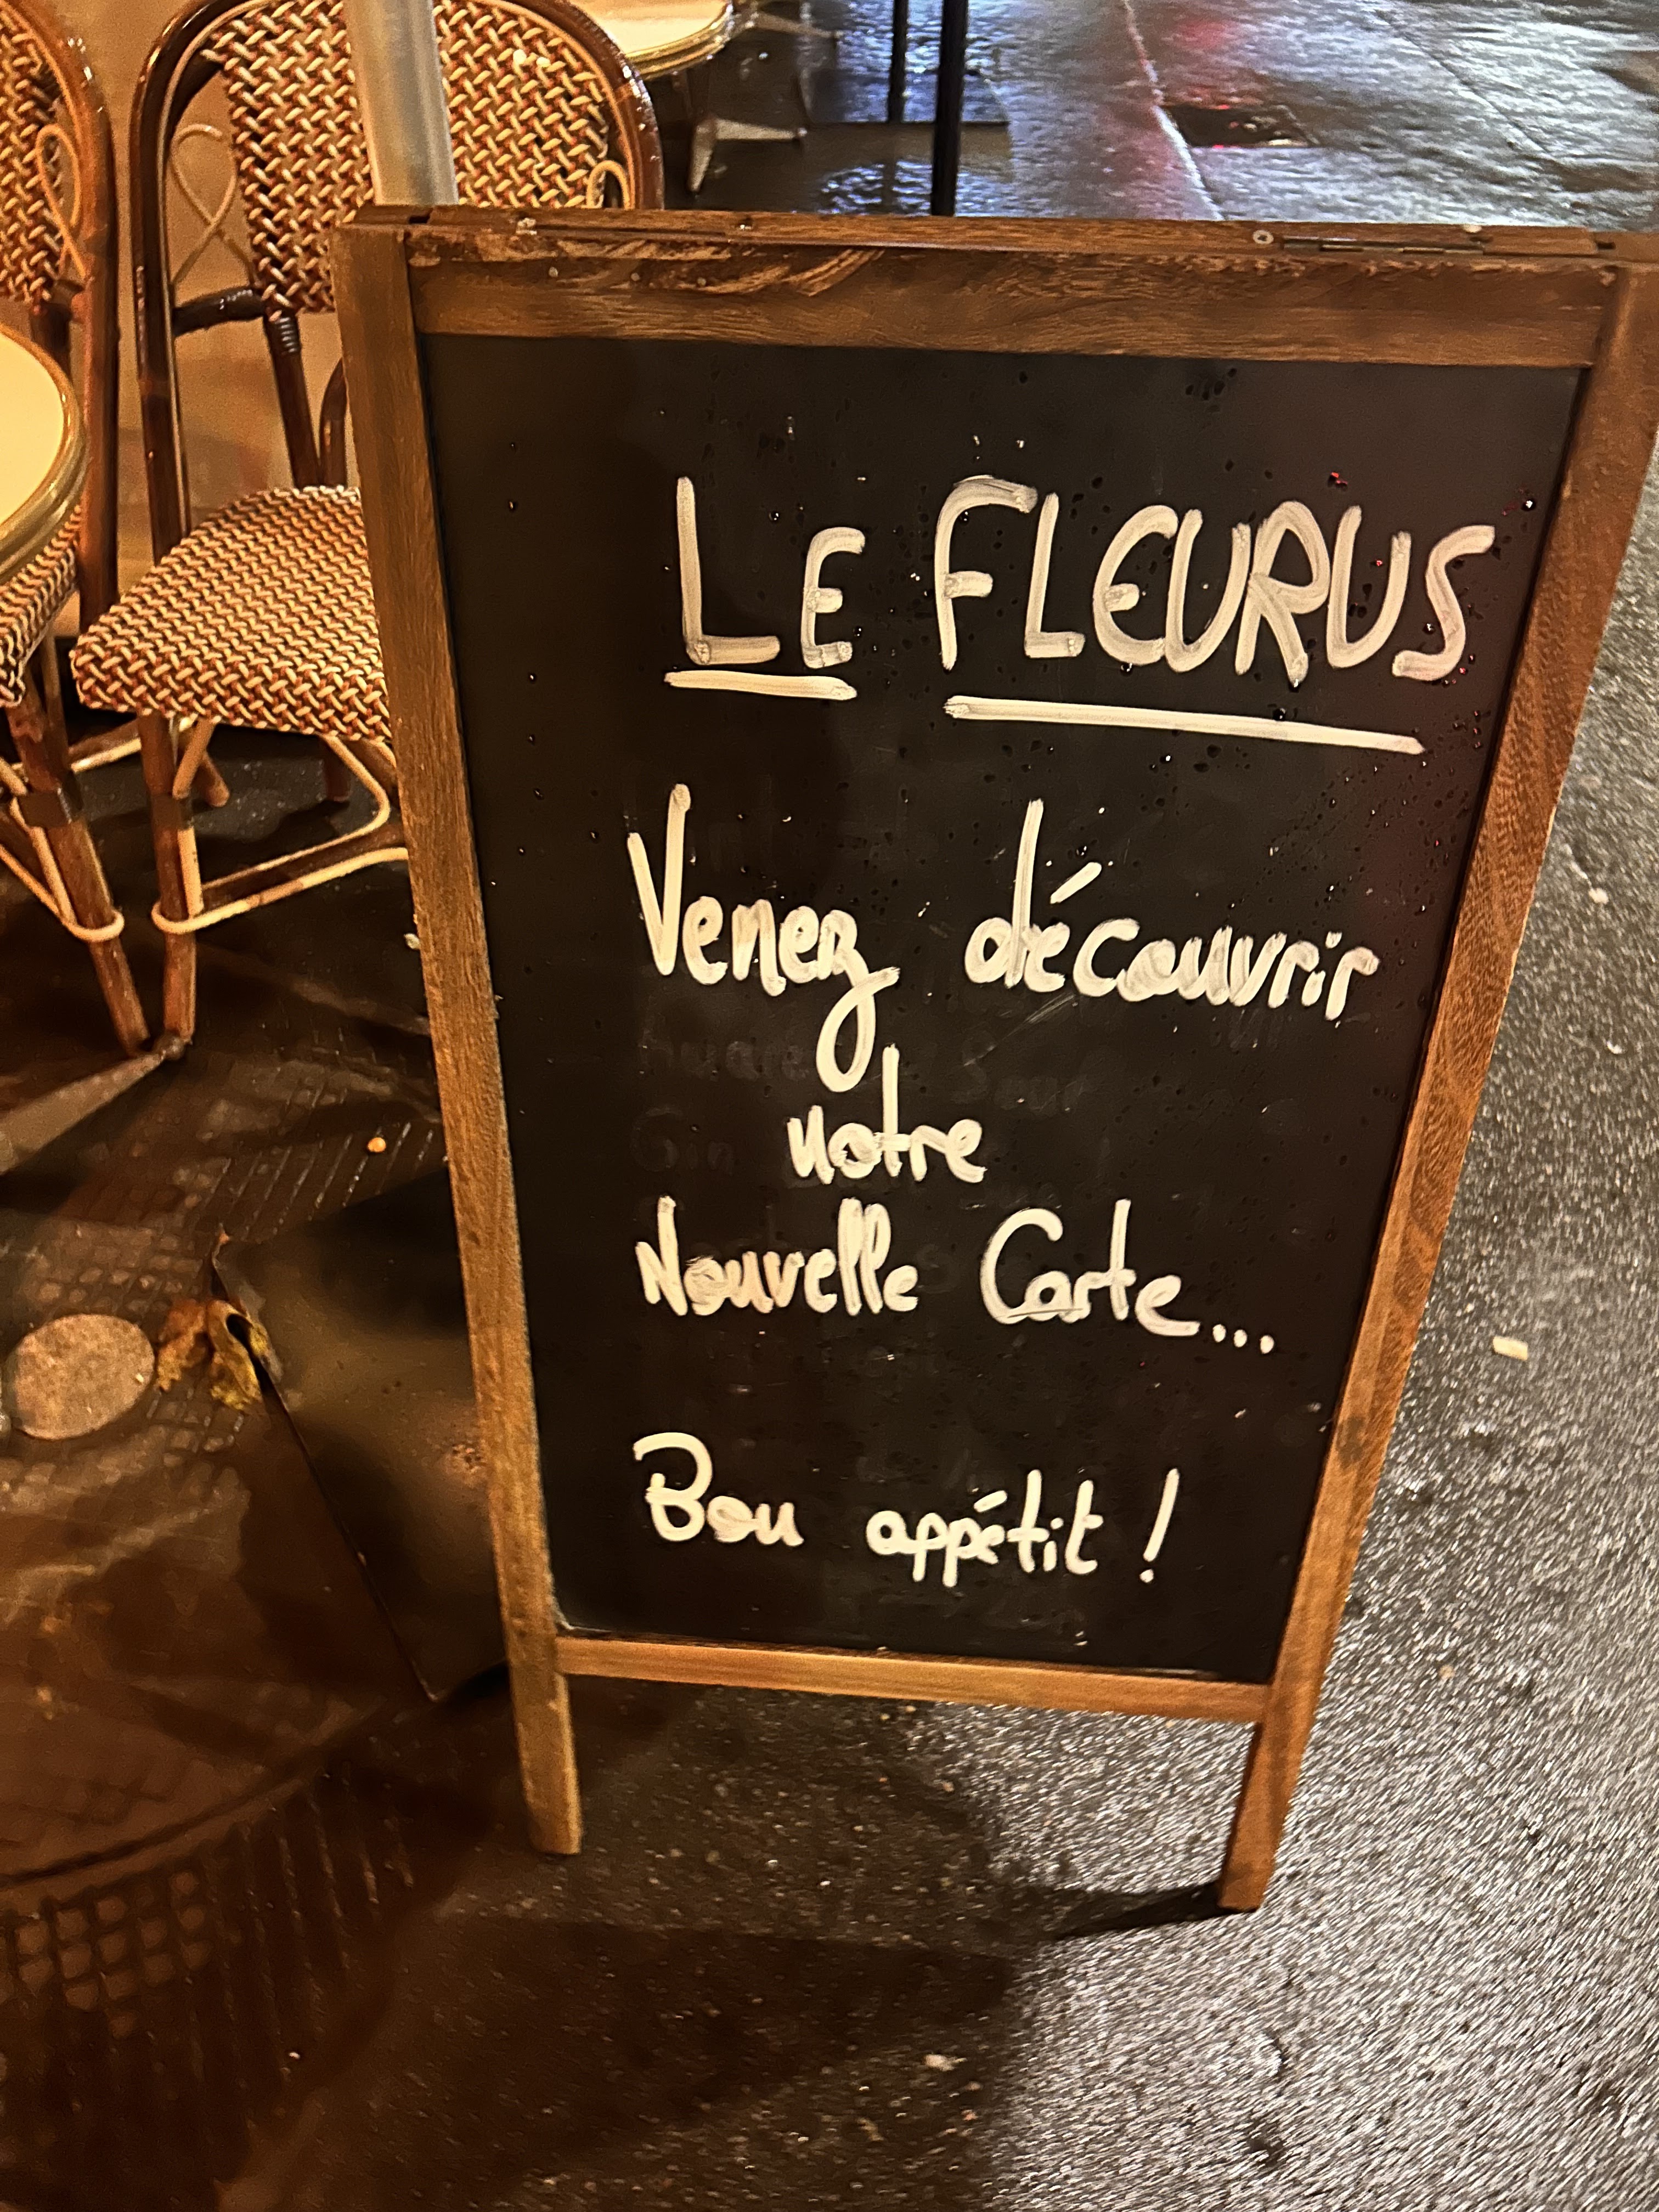 LE FLEURUS
Venez découvrir
notre
Nouvelle Carte...
Bon appétit !